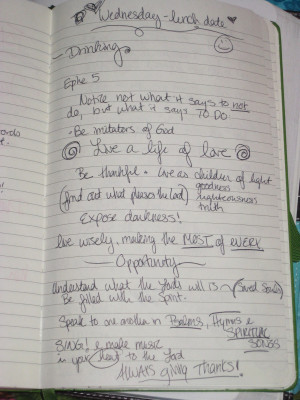 Wednesday - lunch date
- Drinking
Ephe 5
Notice not what it says to not
do, but what it says TO DO
- Be imitators of God
Live a life of love
Be thankful. Live as children of light
goodness
(find out what pleases the Lord) righteousness
truth
Expose darkness!
live wisely, making the MOST of EVERY
Opportunity
Understand what the Lords will is
Be filled with the Spirit.
Speak to one another in Psalms, Hymns &
SPIRITUAL
SONGS
SING! & make music
in your heart to the Lord
ALWAYS giving thanks!